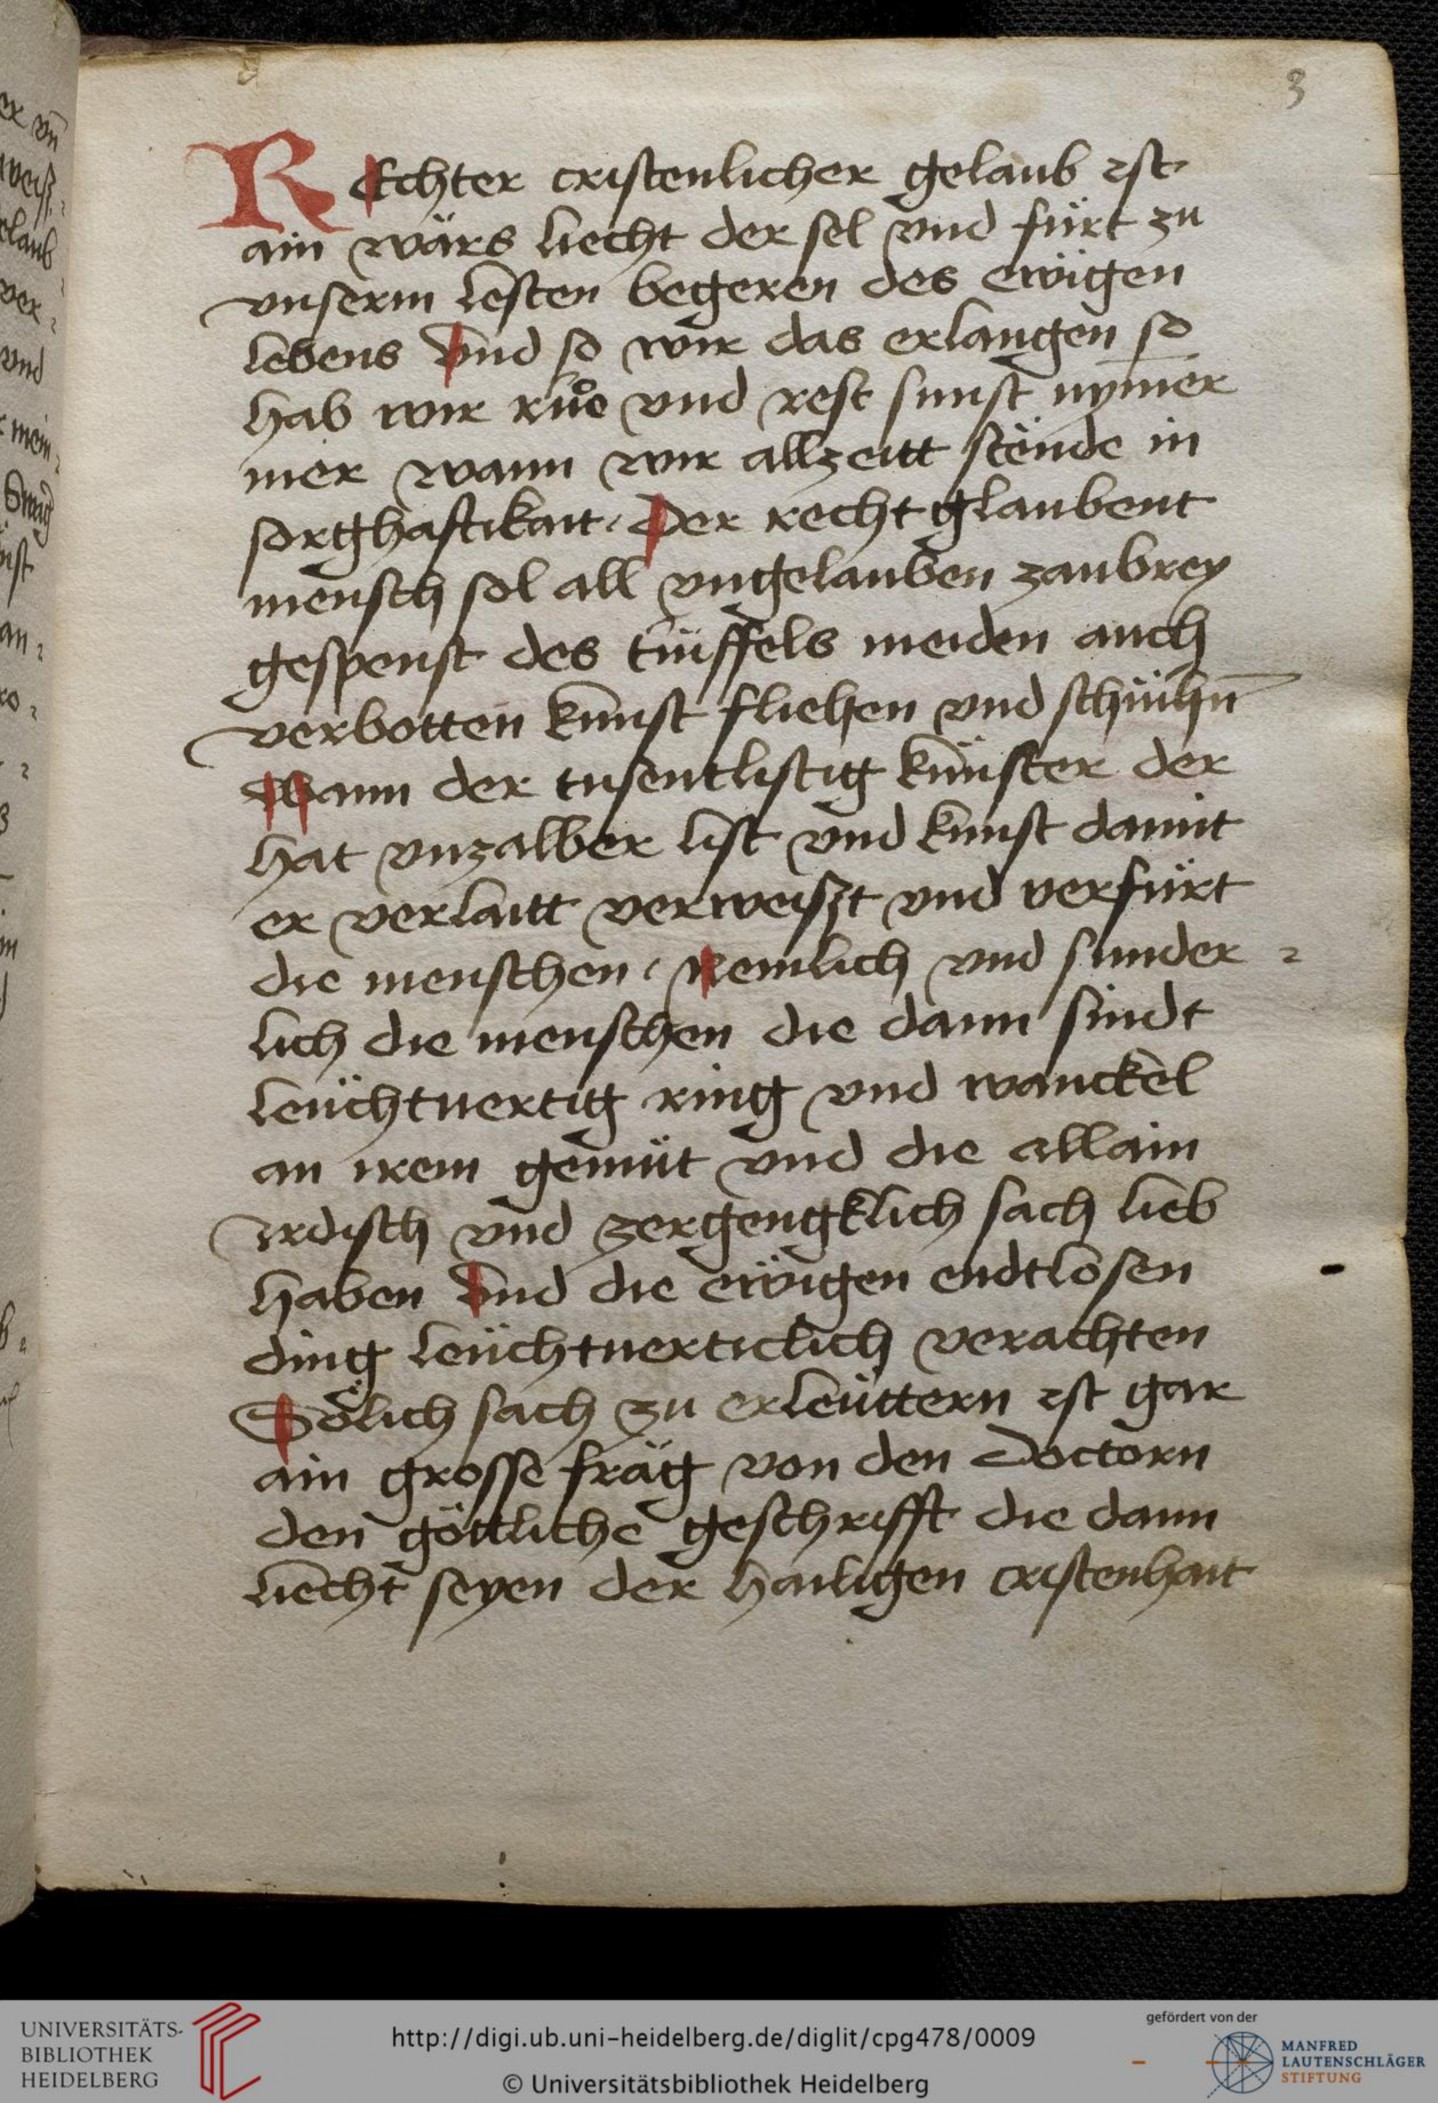 3
REchter cristenlicher gelaub ist
ain wärs liecht der sel vnd fürt zu
vnserm lesten begeren des ewigen
lebens Vnd so wir das erlangen so
hab wir růe vnd rest sunst nym̄er
mer wann wir allzeitt stënde in
sorghaftikait · Der recht glaubent
mensch sol all vngelauben zaubrey
gespenst des tüffels meiden auch
verbotten kunst fliehen vnd schüihn̄
Wann der tusentlistig künster der
hat vnzalber list vnd kunst damit
er verlaitt verweiszt vnd verfürt
die menschen · Nemlich vnd sunder-
lich die menschen die dann sindt
leüchtuertig ring vnd wanckel
an irem gemüt vnd die allain
irdisch vnd zergengklich sach lieb
haben Vnd die ewigen endtlosen
ding leüchtuerticlich verachten
Sölich sach zu erleüttern ist gar
ain grosse fräg von den Doctorn
den göttliche geschrifft die dann
liecht seyen der hailigen cristenhait
UNIVERSITÄTS-
BIBLIOTHEK
HEIDELBERG
http://digi.ub.uni-heidelberg.de/diglit/cpg478/0009
© Universitätsbibliothek Heidelberg
gefördert von der
MANFRED
LAUTENSCHLÄGER
STIFTUNG